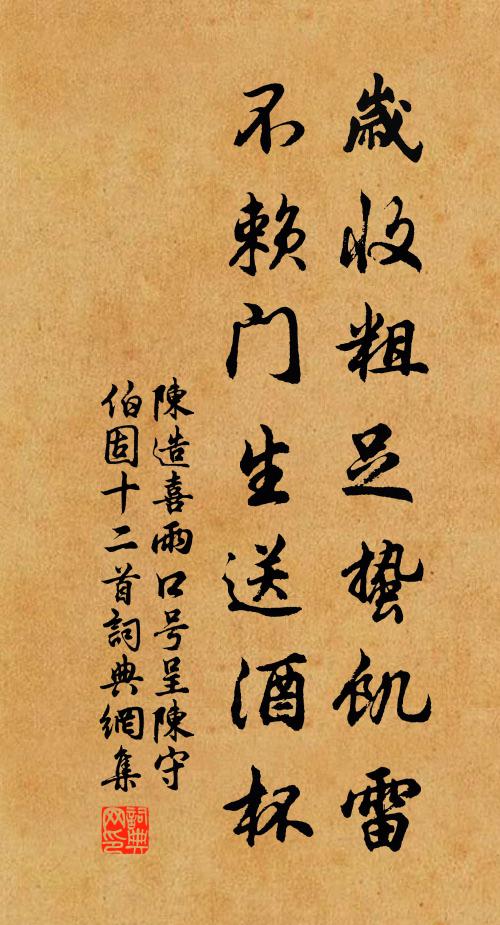 歲收粗足蟄飢雷
不賴門生送酒杯
陳造喜雨口号呈陳守
伯固十二首詞典網集
詞典网印